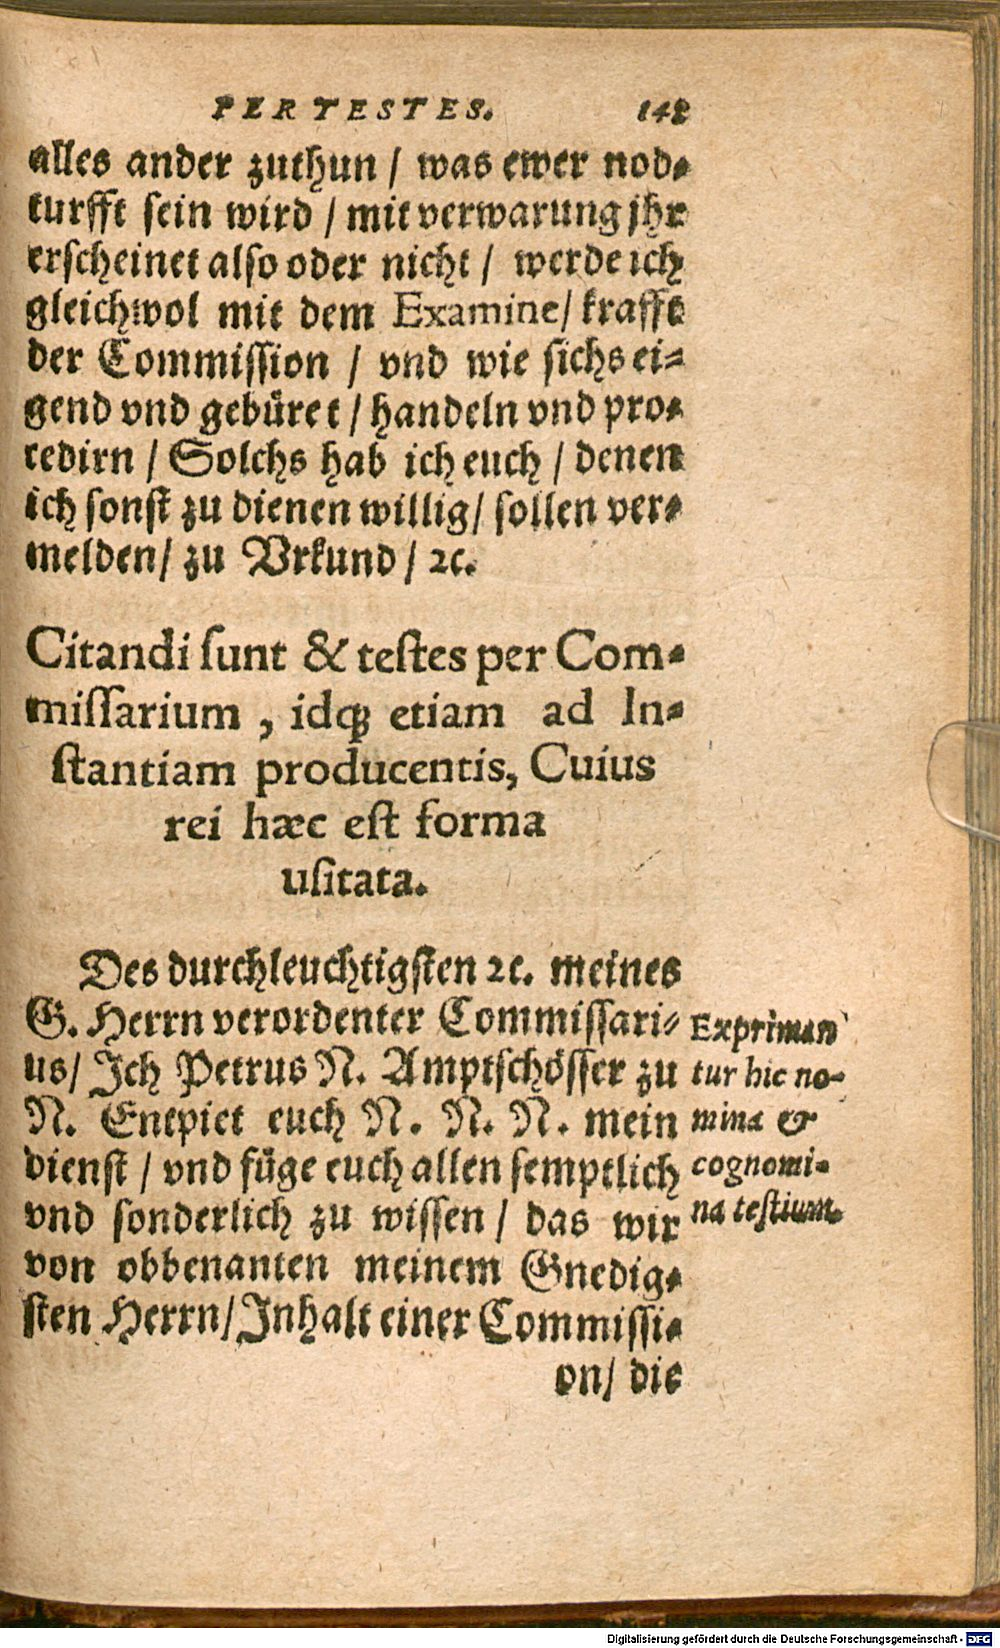 PER TESTES. 148
alles ander zuthun / was ewer nod⸗
turfft sein wird / mit verwarung jhr
erscheinet also oder nicht / werde ich
gleichwol mit dem Examine / krafft
der Commission / vnd wie sichs ei⸗
gend vnd gebüret / handeln vnd pro⸗
cedirn / Solchs hab ich euch / denen
ich sonst zu dienen willig / sollen ver⸗
melden / zu Vrkund / ꝛc.
Citandi sunt & testes per Com⸗
missarium , idq́ꝫ etiam ad In⸗
stantiam producentis, Cuius
rei hæc est forma
usitata.
Des durchleuchtigsten ꝛc. meines
G. Herrn verordenter Commissari⸗
us / Ich Petrus N. Amptschösser zu
N. Entpiet euch N. N. N. mein
dienst / vnd füge euch allen semptlich
vnd sonderlich zu wissen / das wir
von obbenanten meinem Gnedig⸗
sten Herrn / Inhalt einer Commissi⸗
on / die
Expriman
tur hic no-
mina &
cognomi-
na testium.
Digitalisierung gefördert durch die Deutsche Forschungsgemeinschaft - DFG